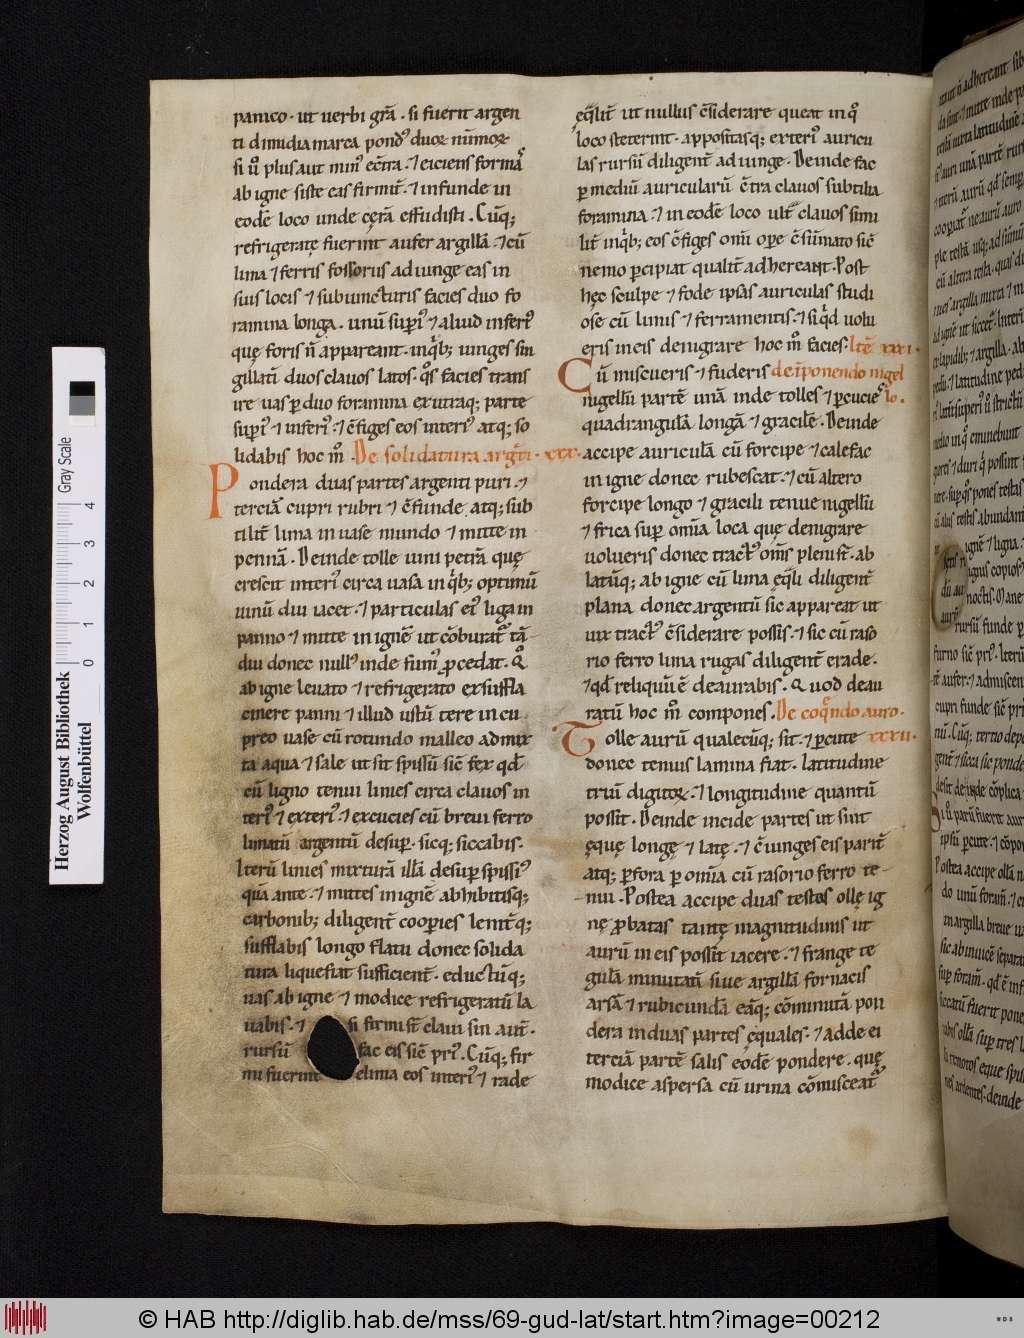 panico · ut uerbi grã · si fuerit argen
ti dimidia marca pond᷒ duoꝝ nũmoꝝ
si ů plus aut min᷒ ec̃tra · ⁊ eiciens formã
ab igne siste eas firmit̃ · ⁊ infunde in
eodẽ loco unde cęrã effudisti . Cũq;
refrigeratę fuerint aufer argillã · ⁊ cũ
lima ⁊ ferris fossorus adiunge eas in
suis locis ⁊ subiuncturis facies duo fo
ramina longa . unũ suꝑi᷒ ⁊ aliud inferi᷒
quę foris ñ appareant · inq̃b; iunges sin
gillatĩ duos clauos latos · q̊s facies trans
ire uas ꝑ duo foramina ex utraq; parte
suꝑi᷒ ⁊ inferi᷒ · ⁊ c̃figes eos interi᷒ atq; so
lidabis hoc m̊ · De solidatura arg̃ti · xxx ·
Pondera duas partes argenti puri . ⁊
terciã cupri rubri ⁊ c̃funde atq; sub
tilit̃ lima in uase mundo ⁊ mitte in
pennã . Deinde tolle uini petrã quę
crescit interi᷒ circa uasa in q̃b; optimũ
uinũ diu iacet · ⁊ particulas ei᷒ liga in
panno ⁊ mitte in ignẽ ut c̃burat᷒ tã
diu donec null᷒ inde fum᷒ ꝓcedat . Q̊
ab igne leuato ⁊ refrigerato exsuffla
cinere panni ⁊ illud ustũ tere in cu
preo uase cũ rotundo malleo admix
ta aqua ⁊ sale ut sit spissũ sic̃ fex qd̃
cũ ligno tenui linies circa clauos in
teri᷒ ⁊ exteri᷒ · ⁊ excucies cũ breui ferro
limatũ argentũ desuꝑ · sicq; siccabis ·
Iterũ linies mixturã illã desuꝑ spissi᷒
quã ante · ⁊ mittes in ignẽ abhibitisq;
carbonib; diligent̃ cooꝑies lenit̃q;
sufflabis longo flatu donec solida
tura liquefiat sufficient̃ · eductũq;
uas ab igne ⁊ modice refrigeratũ la
uabis · ⁊ si firmi st̃ claui sin aut̃ ·
rursũ fac eis sic̃ pri᷒ . Cũq; fir
mi fuerint elima eos interi᷒ ⁊ rade
ęq̃lit̃ ut nullus c̃siderare queat in q̊
loco steterint · appositasq; exteri᷒ auricu
las rursũ diligent̃ adiunge · Deinde fac
ꝑ mediũ auricularũ c̃tra clauos subtilia
foramina · ⁊ in eodẽ loco ult̃ clauos simi
lit̃ in q̃b; eos c̃figes om̃i oꝑe c̃sũmato sic̃
nemo ꝑcipiat qualit̃ adhereant · Post
hęc sculpe ⁊ fode ipsas auriculas studi
ose cũ limis ⁊ ferramentis · ⁊ si q̃d uolu
eris in eis denigrare hoc m̊ facies · Itẽ xxxi ·
Cũ miscueris ⁊ fuderis de ĩponendo nigel
nigellũ partẽ unã inde tolles ⁊ ꝑcucies lo .
quadrangulã longã ⁊ gracilẽ · Deinde
accipe auriculã cũ forcipe ⁊ calefac
in igne donec rubescat · ⁊ cũ altero
forcipe longo ⁊ gracili tenue nigellũ
⁊ frica suꝑ om̃ia loca quę denigrare
uolueris donec tract᷒ om̃s pleni st̃ · ab
latũq; ab igne cũ lima ęq̃li diligent̃
plana donec argentũ sic appareat ut
uix tract᷒ c̃siderare possis · ⁊ sic cũ raso
rio ferro lima rugas diligent̃ erade ·
⁊ qd̃ reliquũ ẽ deaurabis . Quod deau
ratũ hoc m̊ compones . De coq̃ndo auro ·
Tolle aurũ qualecũq; sit · ⁊ ꝑcute xxxii ·
donec tenuis lamina fiat · latitudine
triũ digitoꝝ · ⁊ longitudine quantũ
possit̃ · Deinde incide partes ut sint
ęquę longę ⁊ latę · ⁊ c̃iunges eis parit̃
atq; ꝑfora ꝑ om̃ia cũ rasorio ferro te
nui . Postea accipe duas testas ollę ig
nę ꝓbatas tantę magnitudinis ut
aurũ in eis possit iacere · ⁊ frange te
gulã minutatĩ siue argillã fornacis
arsã ⁊ rubicundã eãq; cõminutã pon
dera in duas partes ęquales · ⁊ adde ei
terciã partẽ salis eodẽ pondere . quę
modice aspersa cũ urina cõmisceat᷒
Herzog August Bibliothek
Wolfenbüttel
Gray Scale
0 1 2 3 4
© HAB http://diglib.hab.de/mss/69-gud-lat/start.htm?image=00212